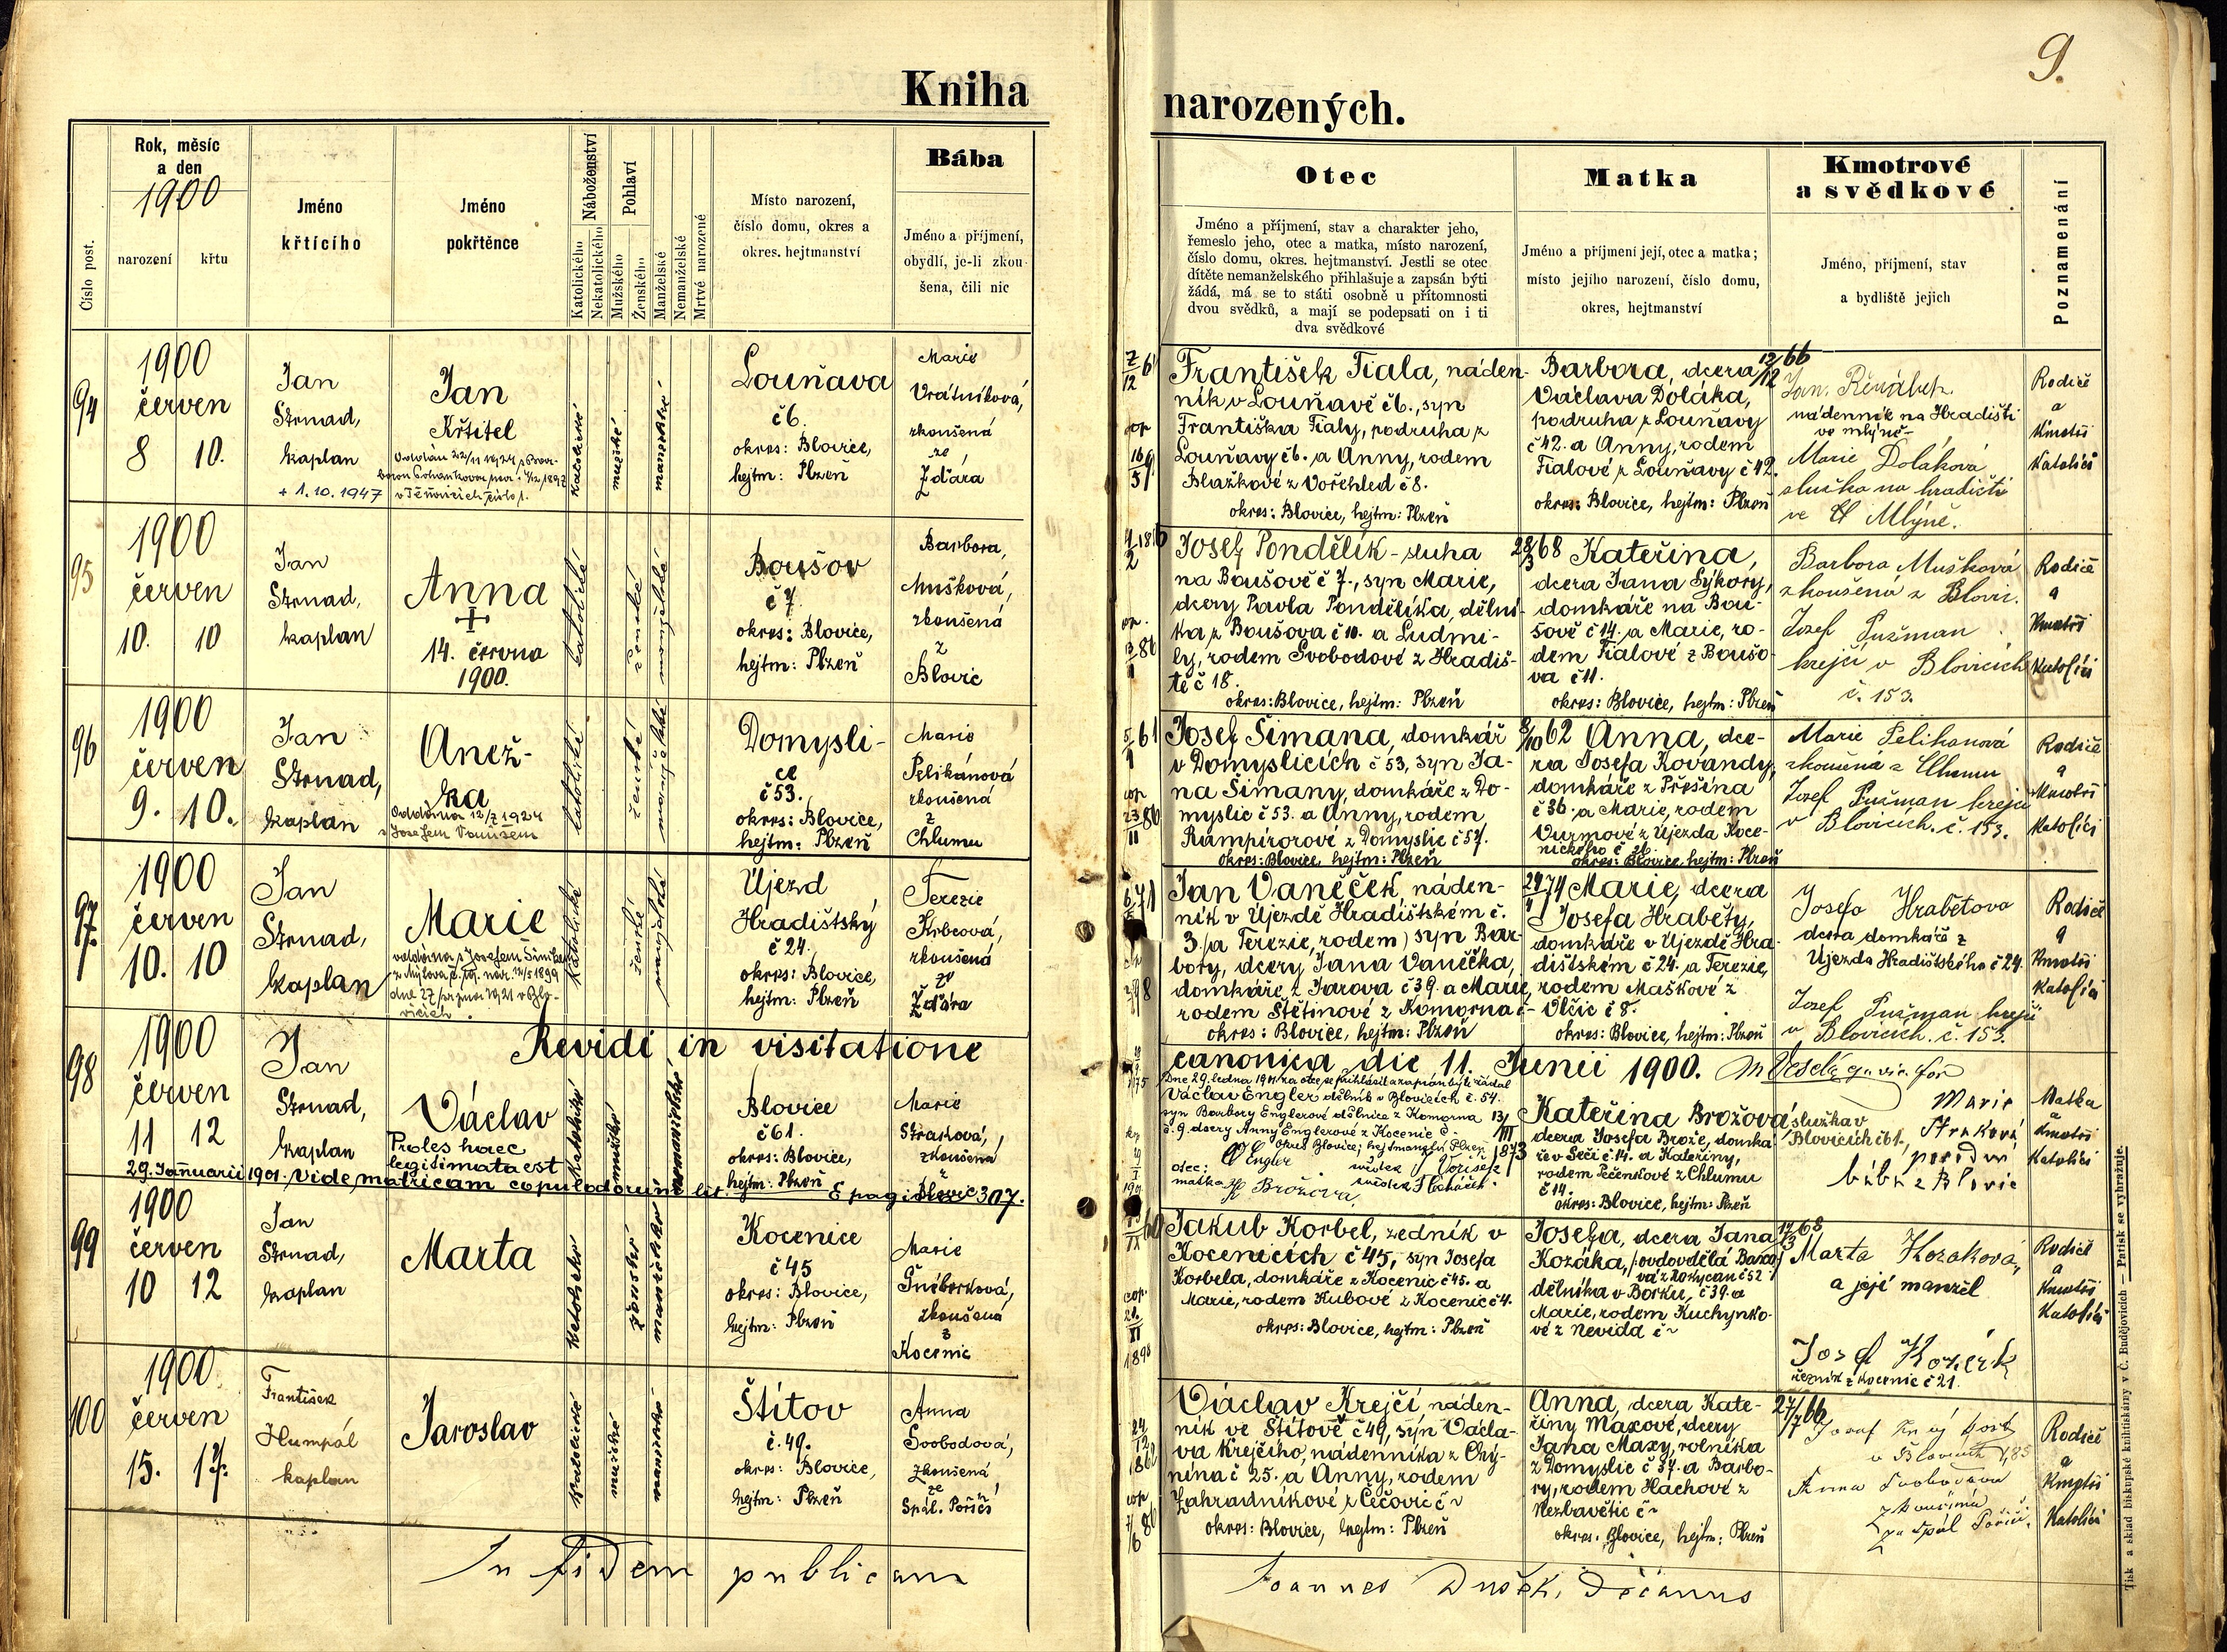 9.
Kniha
narozených.
Číslo post.
Rok, měsíc
a den
1900
narození
křtu
Jméno
křtícího
Jméno
pokřtěnce
Náboženství
Katolického
Nekatolického
Pohlaví
Mužského
Ženského
Manželské
Nemanželské
Mrtvě narozené
Místo narození,
číslo domu, okres a
okres. hejtmanství
Bába
Jméno a příjmení,
obydlí, je-li zkou
šena, čili nic
Otec
Jméno a příjmení, stav a charakter jeho,
řemeslo jeho, otec a matka, místo narození,
číslo domu, okres. hejtmanství. Jestli se otec
dítěte nemanželského přihlašuje a zapsán býti
žádá, má se to státi osobně u přítomnosti
dvou svědků, a mají se podepsati on i ti
dva svědkové
Matka
Jméno a příjmení její, otec a matka;
místo jejího narození, číslo domu,
okres, hejtmanství
Kmotrové
a svědkové
Jméno, příjmení, stav
a bydliště jejich
Poznamenání
94
1900
červen
8 10.
Jan
Strnad,
kaplan
Jan
Křtitel
+ 1.10.1947
katolické
mužské
manželské
Louňava
č6.
okres: Blovice,
hejtm: Plzeň
Marie
Vrátníková,
zkoušená
ze
Žďára
František Fiala, náden-
ník v Louňavě č6., syn
Františka Fialy, podruha z
Louňavy č6. a Anny, rodem
Blažkové z Vořehled č8.
okres: Blovice, hejtm: Plzeň
Barbora, dcera
Václava Doláka,
podruha z Louňavy
č42. a Anny, rodem
Fialové z Louňavy č42.
okres: Blovice, hejtm: Plzeň
12/12 66
Jan
nádenník na Hradišti
ve mlýně
Marie Doláková
služka na hradišti
ve Mlýně.
Rodiče
a
Kmotři
Katolíci
95
1900
červen
10. 10
Jan
Strnad,
kaplan
Anna
14. června
1900.
katolické
ženské
manželské
Boušov
č7.
okres: Blovice,
hejtm: Plzeň
Barbora,
Mušková,
zkoušená
z
Blovic
Josef Pondělík - sluha
na Boušově č7., syn Marie,
dcery Pavla Pondělíka, dělní-
ka z Boušova č10. a Ludmi-
ly, rodem Svobodové z Hradiš-
tě č18.
okres: Blovice, hejtm: Plzeň
28/3 68 Kateřina,
dcera Jana Sýkory,
domkáře na Bou-
šově č14. a Marie, ro-
dem Fialové z Boušo-
va č11.
okres: Blovice, hejtm: Plzeň
Barbora Mušková
zkoušená z Blovic.
Josef Pužman
krejčí v Blovicích
č. 153.
Rodiče
a
Kmotři
Katolíci
96
1900
červen
9. 10.
Jan
Strnad,
kaplan
Anež-
ka
Oddána 12/7 1924
s Josefem
katolické
ženské
manželské
Domysli-
ce
č53.
okres: Blovice,
hejtm: Plzeň
Marie
Pelikánová
zkoušená
z
Chlumu
Josef Šimana, domkář
v Domyslicích č53, syn Ja-
na Šimany, domkáře z Do-
myslic č53. a Anny, rodem
Rampírorové z Domyslic č57.
okres: Blovice, hejtm: Plzeň
8/10 62 Anna, dce-
ra Josefa Kovandy,
domkáře z Přešína
č36. a Marie, rodem
Vurmové z Újezda Koce-
nického č 21.
okres: Blovice, hejtm: Plzeň
Marie Pelikanová
zkoušená z Chlumu
Josef Pužman krejčí
v Blovicích. č. 153.
Rodiče
a
Kmotři
Katolíci
97.
1900
červen
10. 10
Jan
Strnad,
kaplan
Marie
katolické
ženské
manželské
Újezd
Hradištský
č24.
okres: Blovice,
hejtm: Plzeň
Terezie
Krbcová,
zkoušená
ze
Žďára
Jan Vaněček, náden-
ník v Újezdě Hradištském č.
3. (a Terezie, rodem) syn Bar-
bory, dcery Jana Vaněčka,
domkáře z Jarova č39. a Marie,
rodem Štětinové z Komorna č-
okres: Blovice, hejtm: Plzeň
74 Marie, dcera
Josefa Hraběty,
domkáře v Újezdě Hra-
dištském č24. a Terezie,
rodem Maškové z
Vlčic č8.
okres: Blovice, hejtm: Plzeň
Josefa Hrabětova
dcera domkáře z
Újezda Hradištského č24.
Josef Pužman krejčí
v Blovicích. č. 153.
Rodiče
a
Kmotři
Katolíci
98
1900
červen
11 12
Jan
Strnad,
kaplan
Revidi in visitatione
canonica die 11. Junii 1900.
Václav
Proles haec
legitimata est
29. Januarii 1901. Vide matricam copulatorum lit. E pag. 307.
katolické
mužské
nemanželské
Blovice
č61.
okres: Blovice,
hejtm: Plzeň
Marie
Straková,
zkoušená
z
Blovic
Dne 29. ledna 1901 za otce se přihlásil a zapsán býti žádal
Václav Engler dělník v Blovicích č. 54.
syn Barbory Englerové dělnice z Komorna
č. 9. dcery Anny Englerové z Kocenic č-
okres Blovice, hejtmanství Plzeň
otec: V Engler
matka K Brožova
svědek J Voříšek
svědek
13/III 1873
Kateřina Brožová, služka v
Blovicích č61.,
dcera Josefa Brože, domká-
ře v Seči č14. a Kateřiny,
rodem Pečenkové z Chlumu
č14.
okres: Blovice, hejtm: Plzeň
Marie
Straková
porodní
bába z Blovic
Matka
a
Kmotři
Katolíci
99
1900
červen
10 12
Jan
Strnad,
kaplan
Marta
katolické
ženské
manželské
Kocenice
č45
okres: Blovice,
hejtm: Plzeň
Marie
Šnéberková,
zkoušená
z
Kocenic
Jakub Korbel, zedník v
Kocenicích č45, syn Josefa
Korbela, domkáře z Kocenic č45. a
Marie, rodem Kubové z Kocenic č4.
okres: Blovice, hejtm: Plzeň
Josefa, dcera Jana
Kozáka, (ovdovělá
vá z Rokycan č52
dělníka v Borku, č39. a
Marie, rodem Kuchynko-
vé z Nevida č~
17/3 68
Marta Kozaková,
a její manžel
Josef Kozák
řezník z Kocenic č21.
Rodiče
a
Kmotři
Katolíci
100
1900
červen
15. 17.
František
Humpál
kaplan
Jaroslav
katolické
mužské
manželské
Štítov
č.49.
okres: Blovice,
hejtm: Plzeň
Anna
Svobodová,
zkoušená
ze
Spál. Poříčí
Václav Krejčí, náden-
ník ve Štítově č49, syn Václa-
va Krejčího, nádenníka z Chý-
nína č25. a Anny, rodem
Zahradníkové z Čečovic č~
okres: Blovice, hejtm: Plzeň
Anna, dcera Kate-
řiny Maxové, dcery
Jana Maxy, rolníka
z Domyslic č37. a Barbo-
ry, rodem Hachové z
Nezbavětic č~
okres: Blovice, hejtm: Plzeň
27/7 66
Anna Svobodova
zkoušená
ze Spál Poříčí.
Rodiče
a
Kmotři
Katolíci
In fidem publicam
Joannes Dušek, Décanus
Tisk a sklad biskupské knihtiskárny v Č. Budějovicích — Patisk se vyhražuje.